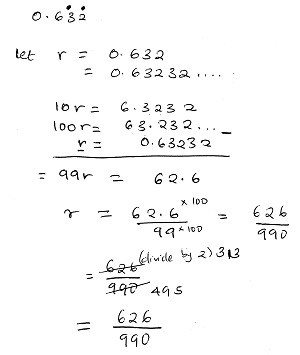 0.63̇2̇
let r = 0.632
= 0.63232....
10r = 6.3232
100r = 63.232... -
r = 0.63232
= 99r = 62.6
r = 62.6 × 100 / 99 × 100 = 626 / 990
= 626 / 990 (divide by 2) 313 / 495
= 626 / 990